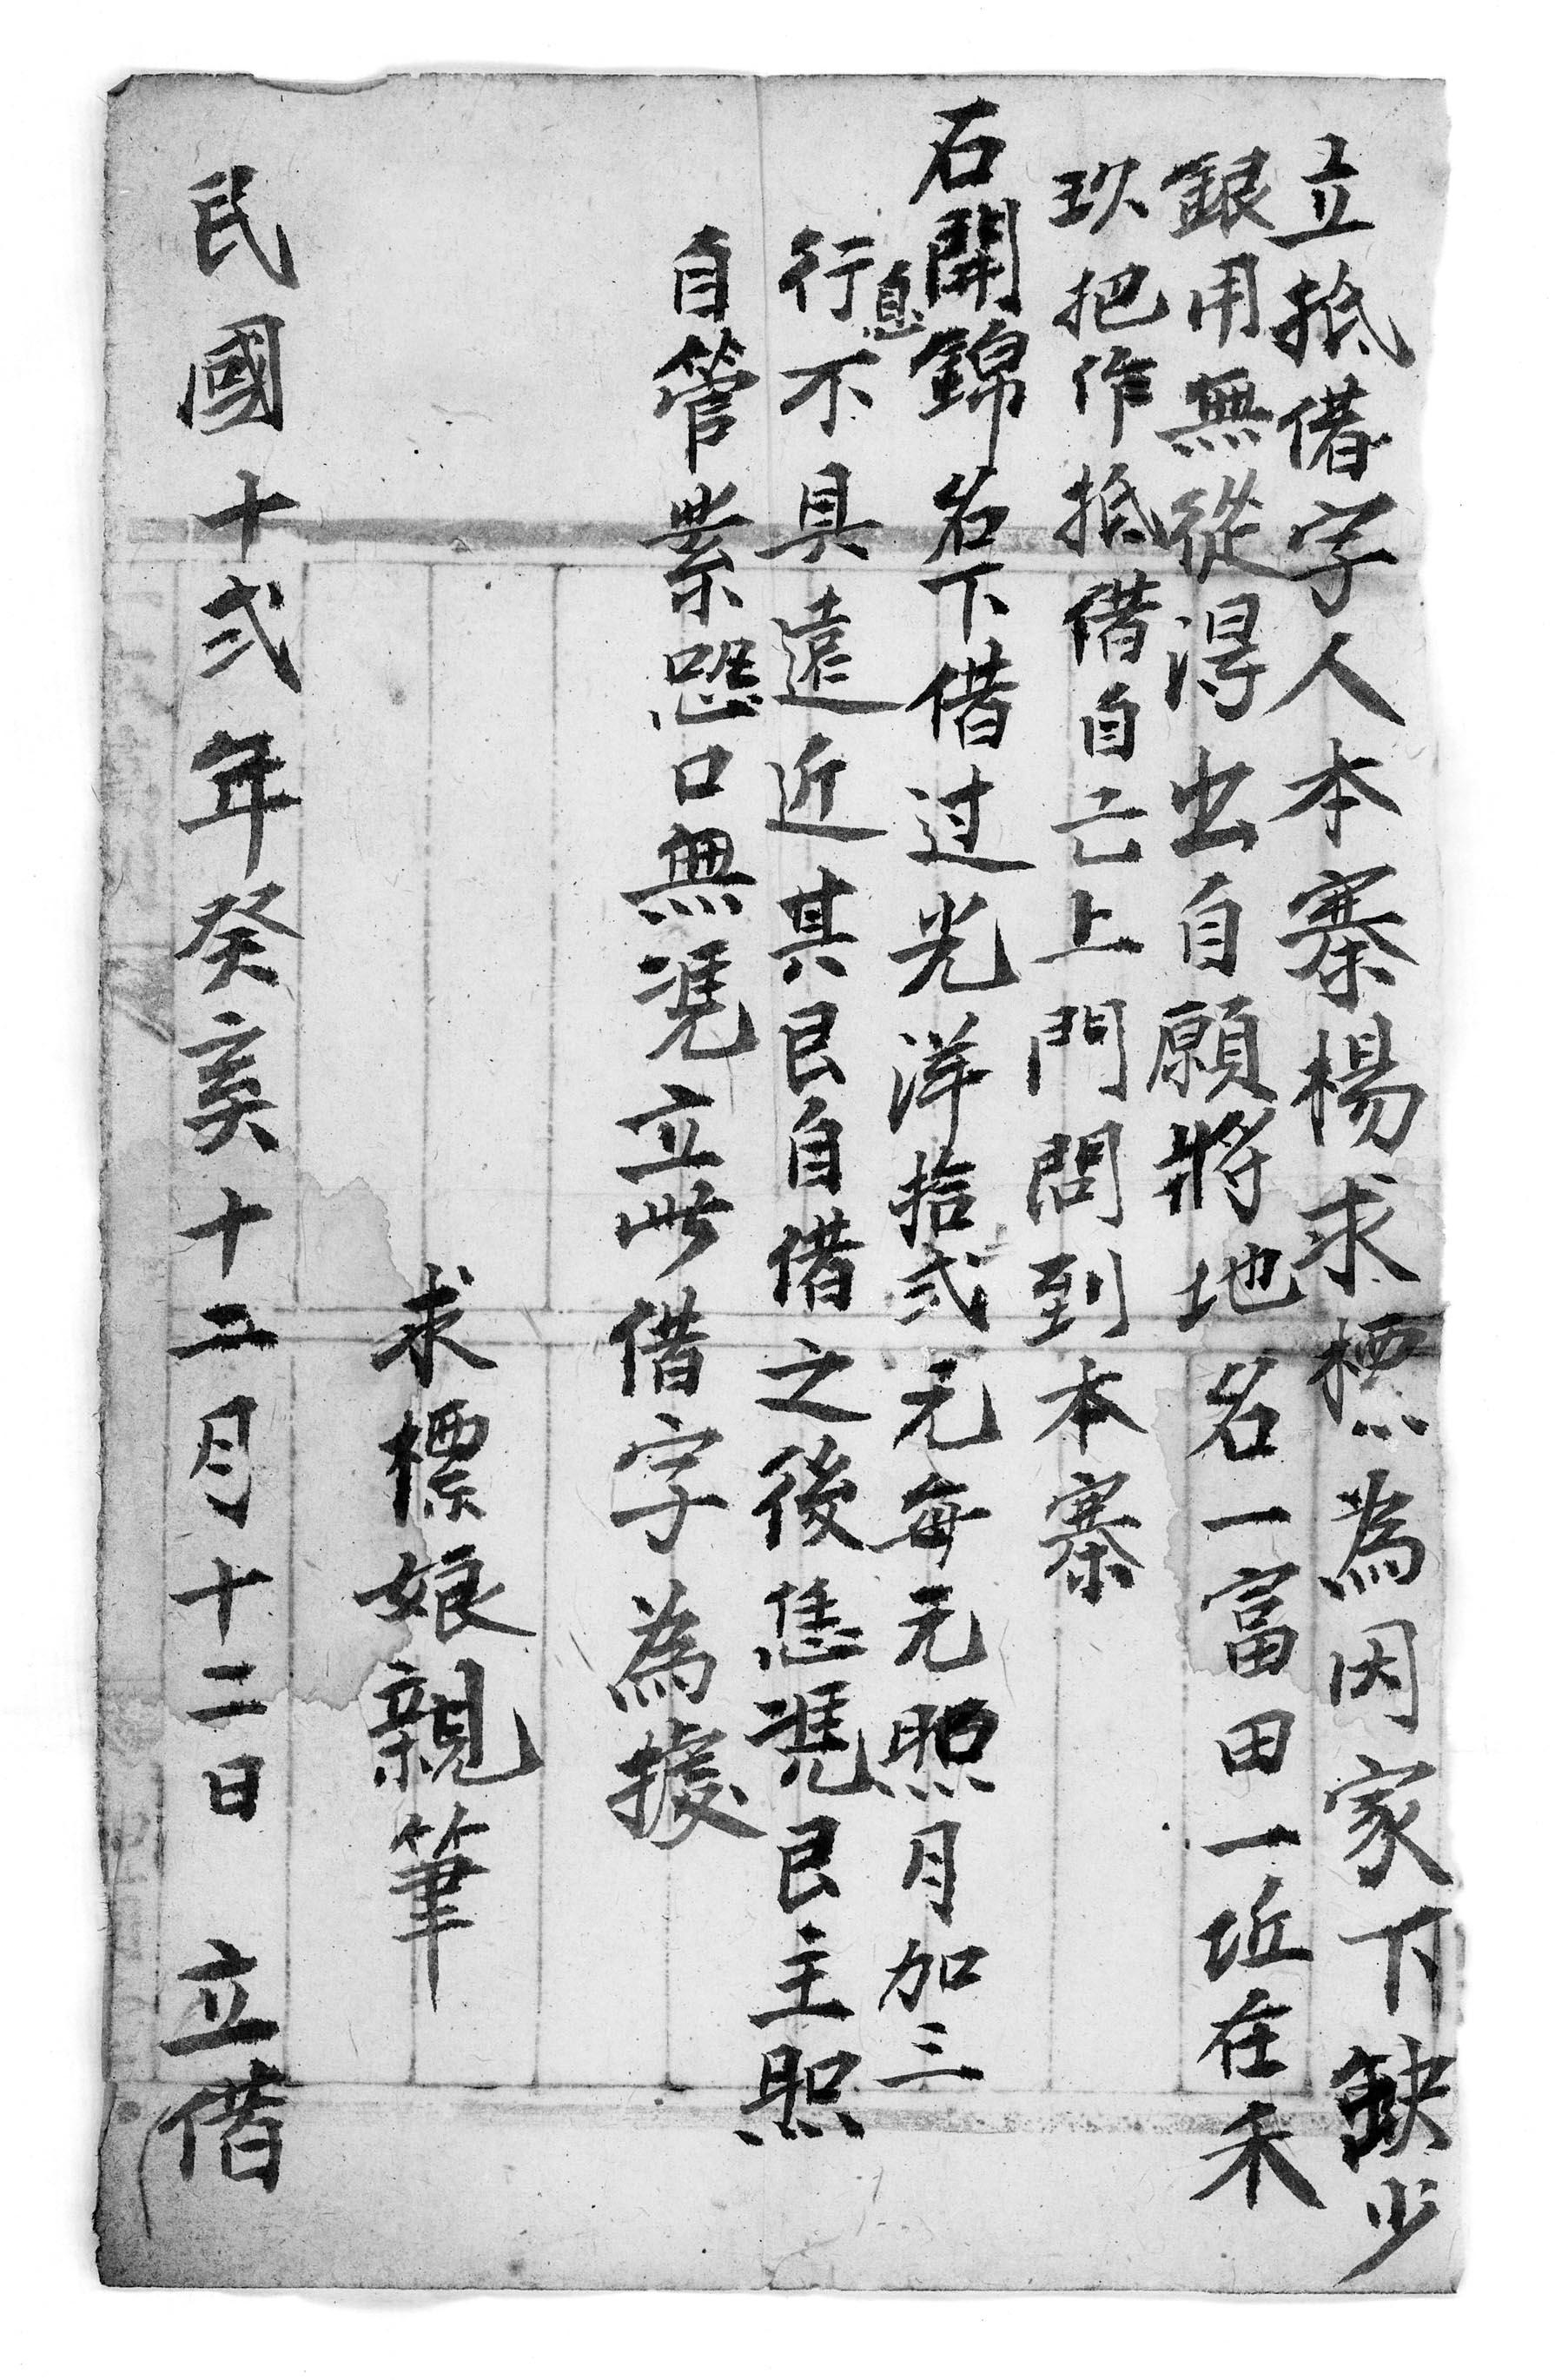 立抵借字人本寨楊求標為因家下缺少
銀用無從淂出自願將地名一富田一坵在禾
玖把作抵借自己上門問到本寨
石開錦名下借过光洋拾弍元每元照月加三
行息不具遠近其艮自借之後恁凴艮主照
自管業恐口無凴立此借字為據
求標娘親筆
民國十弍年癸亥十二月十二日 立借